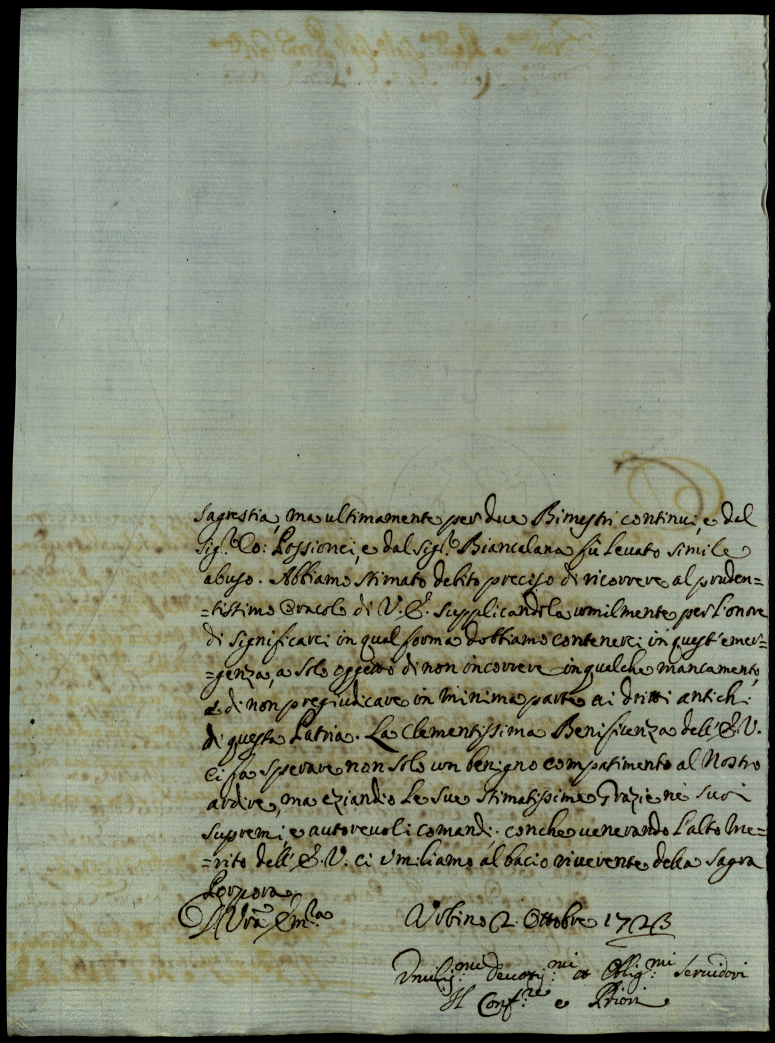 Sagrestia, ma ultimamente per due Bimestri continui, e dal
Sig.r Co: Possionei, e dal Sig.r Biancalana fù levato simile
abuso. Abbiamo stimato debito preciso di ricorrere al pruden=
=tissimo Oracolo di V. E. supplicandola umilmente per l'onore
di significarci in qual forma dobbiamo contenerci in quest'emer=
=genza, a solo oggetto di non incorrere in qualche mancamento,
e di non pregiudicare in minima parte ai dritti antichi
di questa Patria. La Clementissima Benificenza dell'E. V.
ci fa sperare non solo un benigno compatimento al Nostro
ardire, ma eziandio le sue stimatissime Grazie ne suoi
supremi, e autorevoli comandi; con che venerando l'alto me=
=rito dell'E. V. ci umiliamo al bacio riverente della Sagra
Porpora
D V̄ra Em̄a
Urbino 2. Ottobre 1723
Umilis.mi Devotis.mi et Oblig.mi Servidori
Il Conf.re e Priori